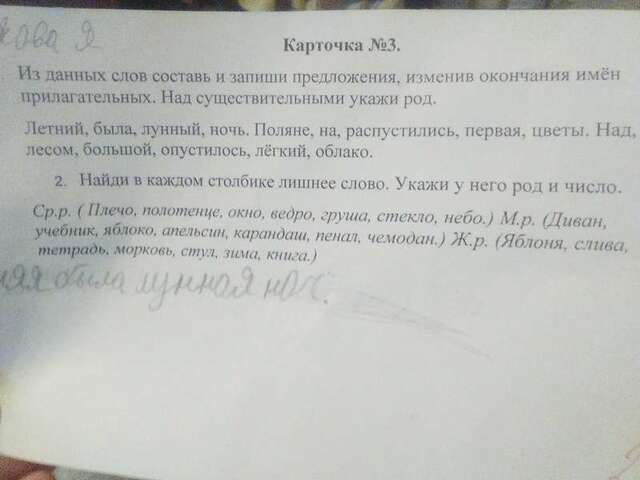 кова Я
Карточка №3.
Из данных слов составь и запиши предложения, изменив окончания имён
прилагательных. Над существительными укажи род.
Летний, была, лунный, ночь. Поляне, на, распустились, первая, цветы. Над,
лесом, большой, опустилось, лёгкий, облако.
2. Найди в каждом столбике лишнее слово. Укажи у него род и число.
Ср.р. ( Плечо, полотенце, окно, ведро, груша, стекло, небо.) М.р. (Диван,
учебник, яблоко, апельсин, карандаш, пенал, чемодан.) Ж.р. (Яблоня, слива,
тетрадь, морковь, стул, зима, книга.)
няя была лунная ноч.